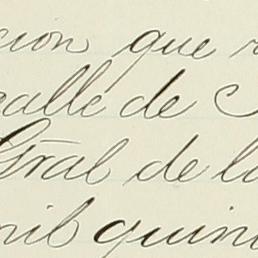 cion que
calle de
Gral de la
mil quin